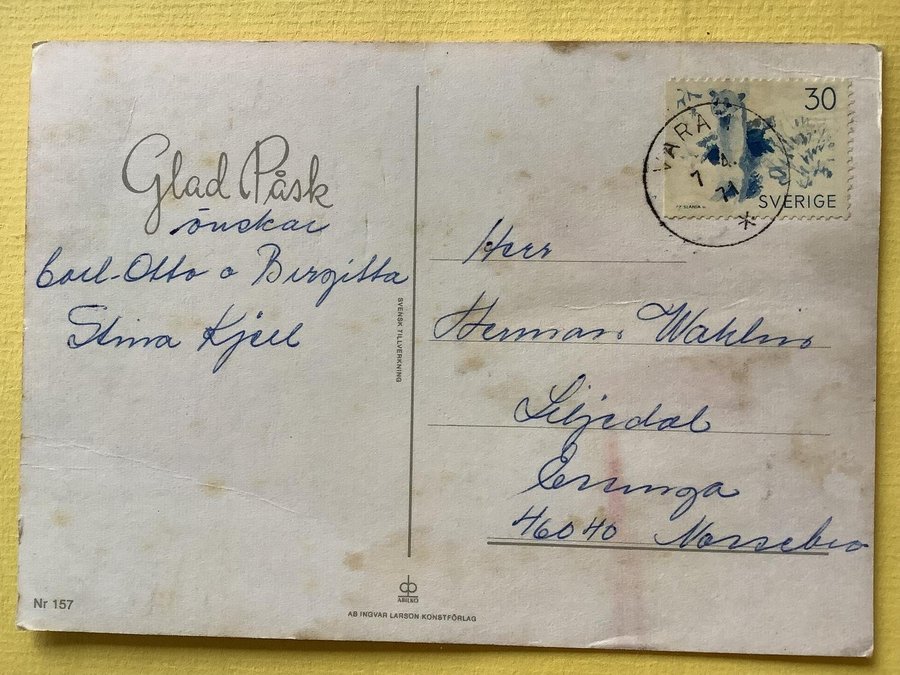 Glad Påsk
önskar
Carl-Otto o Birgitta
Stina Kjell
SVENSK TILLVERKNING
30
SVERIGE
VARA
7 4. 71
Herr
Herman Wahlin
Liljedal
Erunga
46040 Nossebro
Nr 157
ABILKO
AB INGVAR LARSON KONSTFÖRLAG